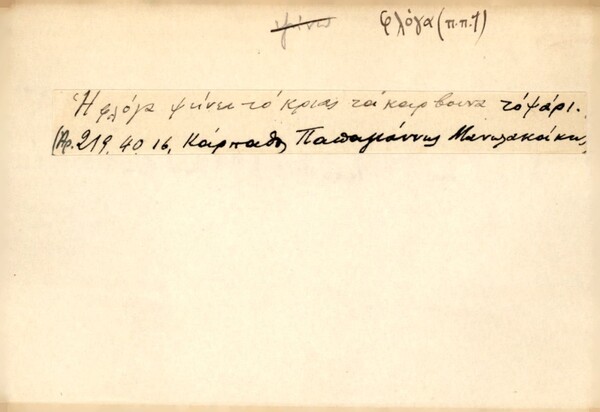 ψήνω φλόγα (π.π.1)
Ἡ φλόγα ψήνει τό κρέας τά κάρβουνα τό ψάρι.
(Ἀρ. 219, 40 16, Κάρπαθος Παπαγιάννης Μανωλακάκης